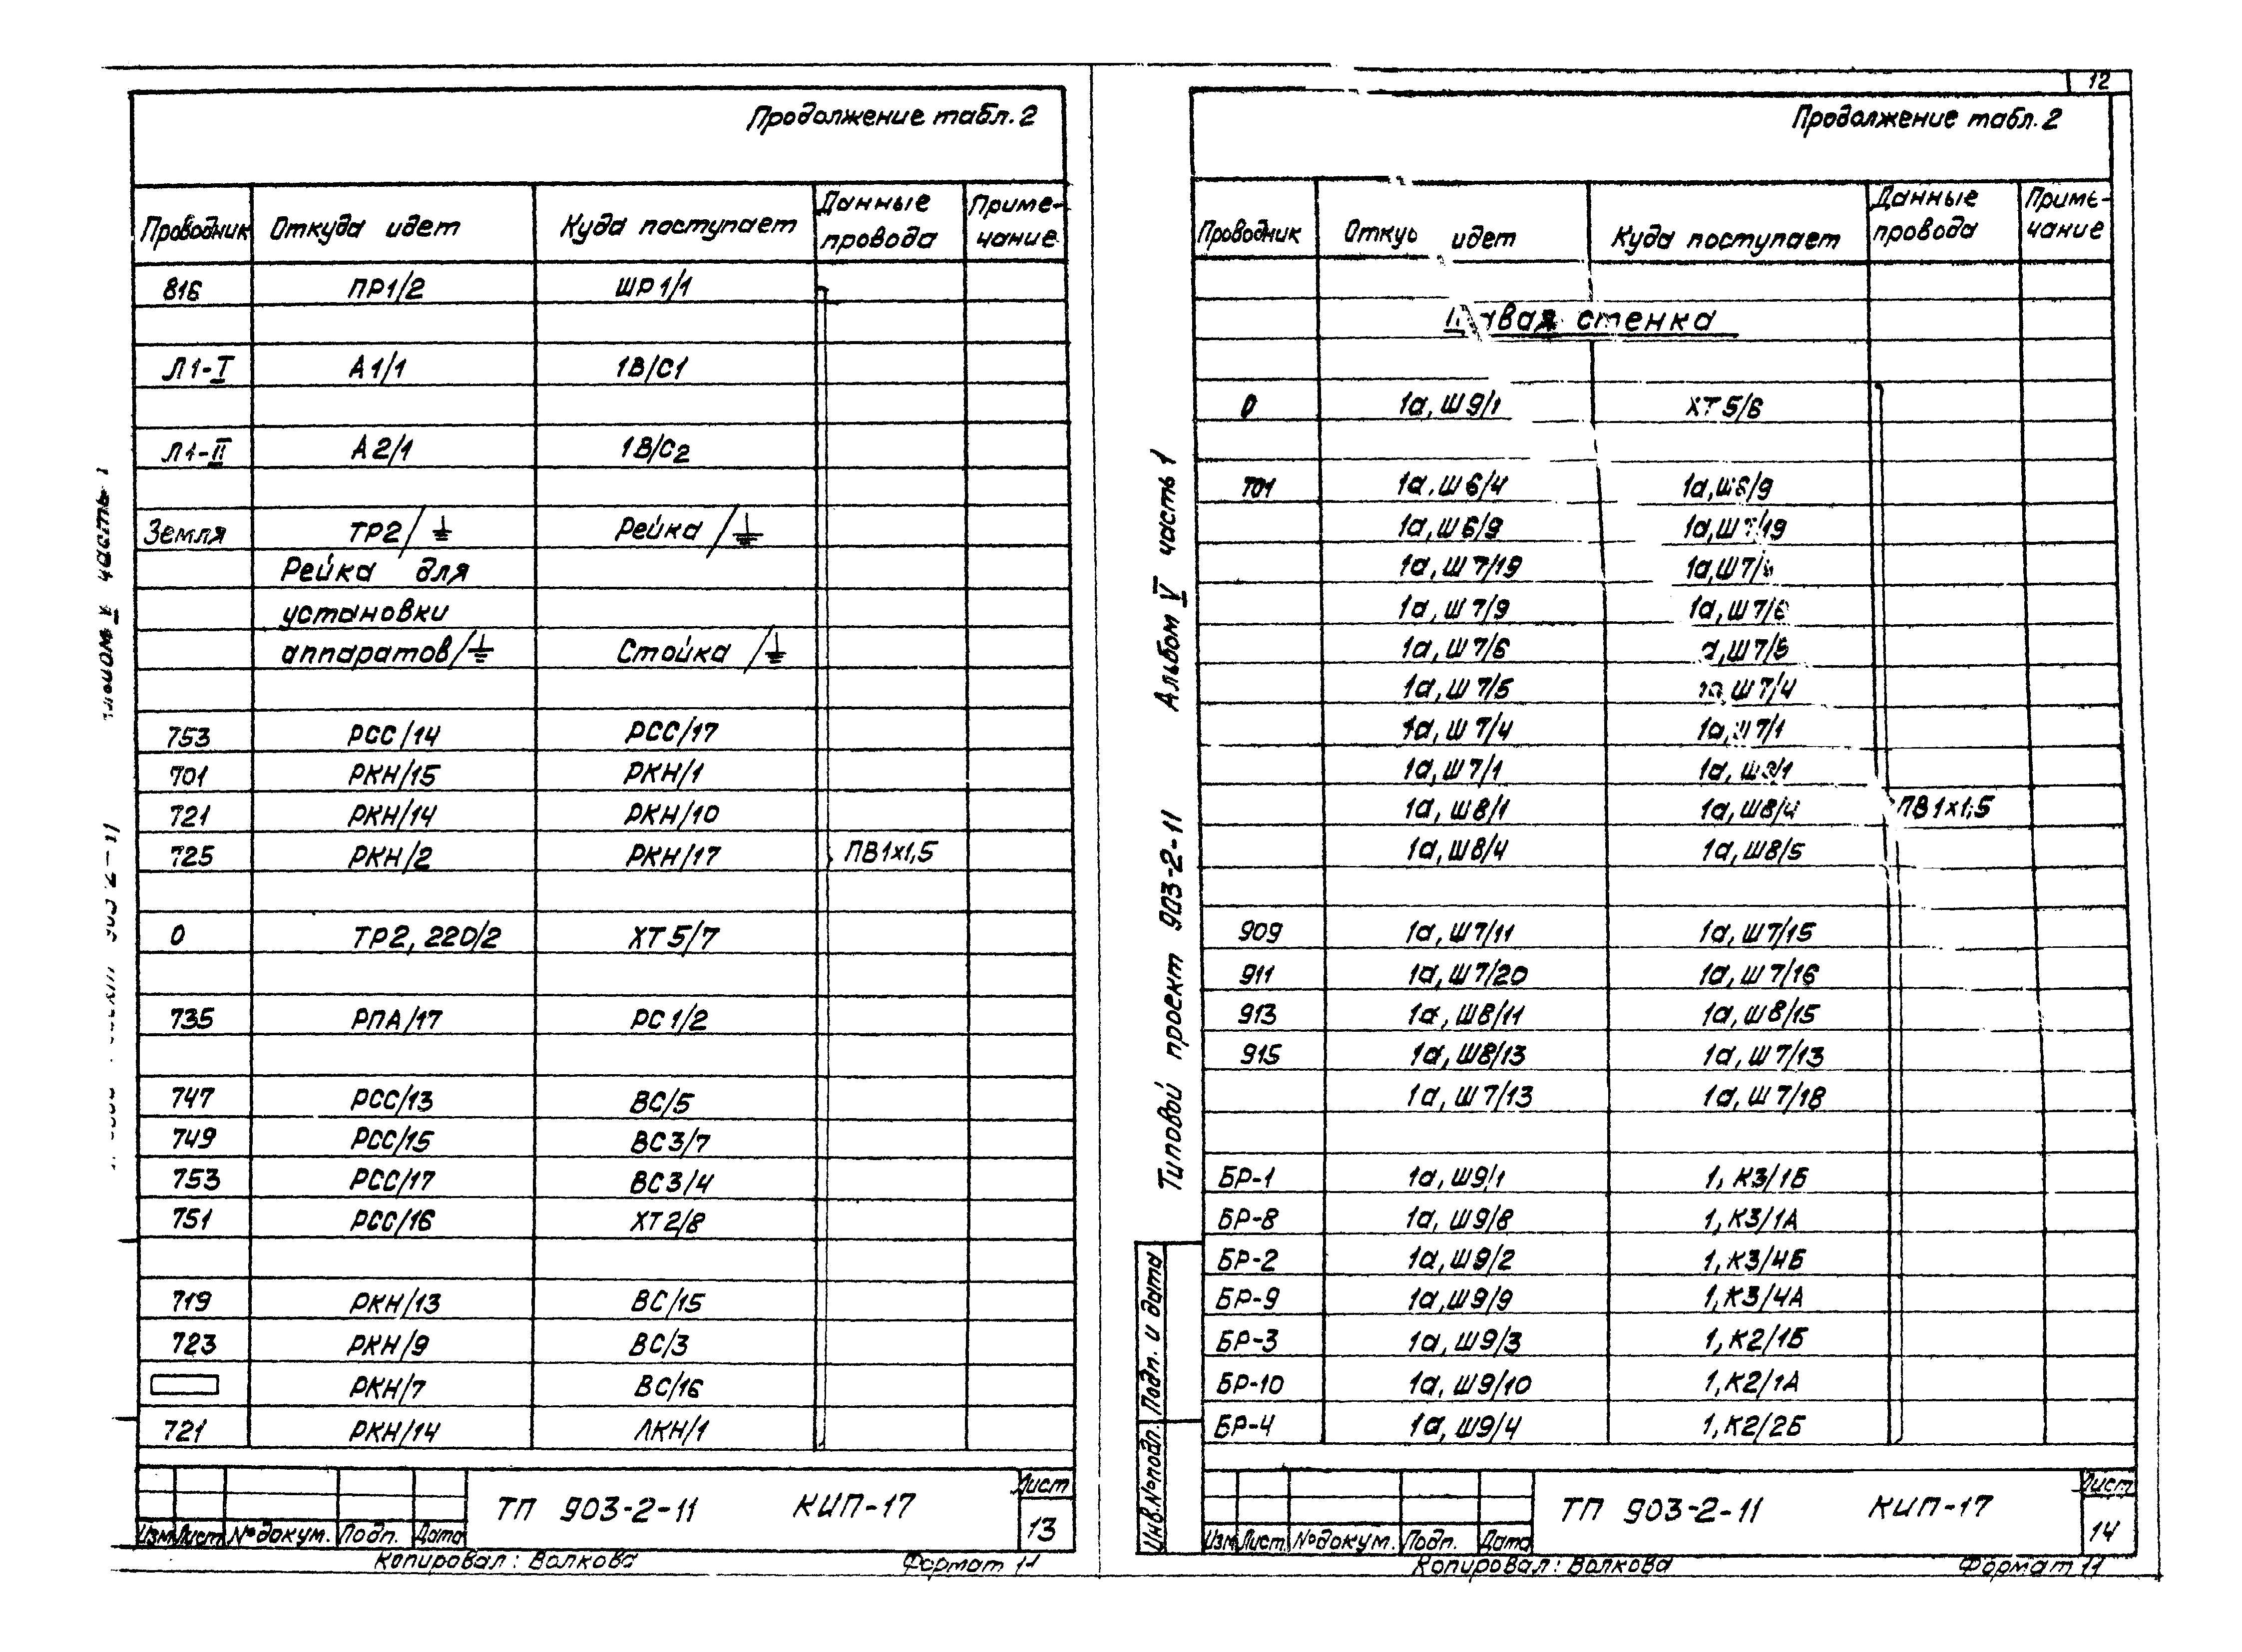 Продолжение табл. 2
Проводник Откуда идет Куда поступает Данные провода Приме-чание
816 ПР1/2 ШР1/1
Л1-I А1/1 1В/С1
Л1-II А2/1 1В/С2
Земля ТР2/⏚ Рейка/⏚
Рейка для
установки
аппаратов/⏚ Стойка/⏚
753 РСС/14 РСС/17
701 РКН/15 РКН/1
721 РКН/14 РКН/10
725 РКН/2 РКН/17 ПВ1х1,5
0 ТР2, 220/2 ХТ5/7
735 РПА/17 РС1/2
747 РСС/13 ВС/5
749 РСС/15 ВС3/7
753 РСС/17 ВС3/4
751 РСС/16 ХТ2/8
719 РКН/13 ВС/15
723 РКН/9 ВС/3
РКН/7 ВС/16
721 РКН/14 ЛКН/1
Изм. Лист №докум. Подп. Дата
ТП 903-2-11 КИП-17
Лист
13
Копировал: Волкова Формат 11
часть 1
12
Продолжение табл. 2
Проводник идет Куда поступает Данные провода Приме-чание
стенка
0 1а, Ш9/1 ХТ5/6
701 1а, Ш6/4 1а, Ш6/9
1а, Ш6/9 1а, Ш7/19
1а, Ш7/19 1а, Ш7/
1а, Ш7/9 1а, Ш7/6
1а, Ш7/6 а, Ш7/5
1а, Ш7/5 1а, Ш7/4
1а, Ш7/4 1а, Ш7/1
1а, Ш7/1 1а, Ш8/1
1а, Ш8/1 1а, Ш8/4 ПВ1х1,5
1а, Ш8/4 1а, Ш8/5
909 1а, Ш7/11 1а, Ш7/15
911 1а, Ш7/20 1а, Ш7/16
913 1а, Ш8/11 1а, Ш8/15
915 1а, Ш8/13 1а, Ш7/13
1а, Ш7/13 1а, Ш7/18
БР-1 1а, Ш9/1 1, К3/1Б
БР-8 1а, Ш9/8 1, К3/1А
БР-2 1а, Ш9/2 1, К3/4Б
БР-9 1а, Ш9/9 1, К3/4А
БР-3 1а, Ш9/3 1, К2/1Б
БР-10 1а, Ш9/10 1, К2/1А
БР-4 1а, Ш9/4 1, К2/2Б
Типовой проект 903-2-11 Альбом V часть 1
Инв.№подл. Подп. и дата
Изм. Лист №докум. Подп. Дата
ТП 903-2-11 КИП-17
Лист
14
Копировал: Волкова Формат 11